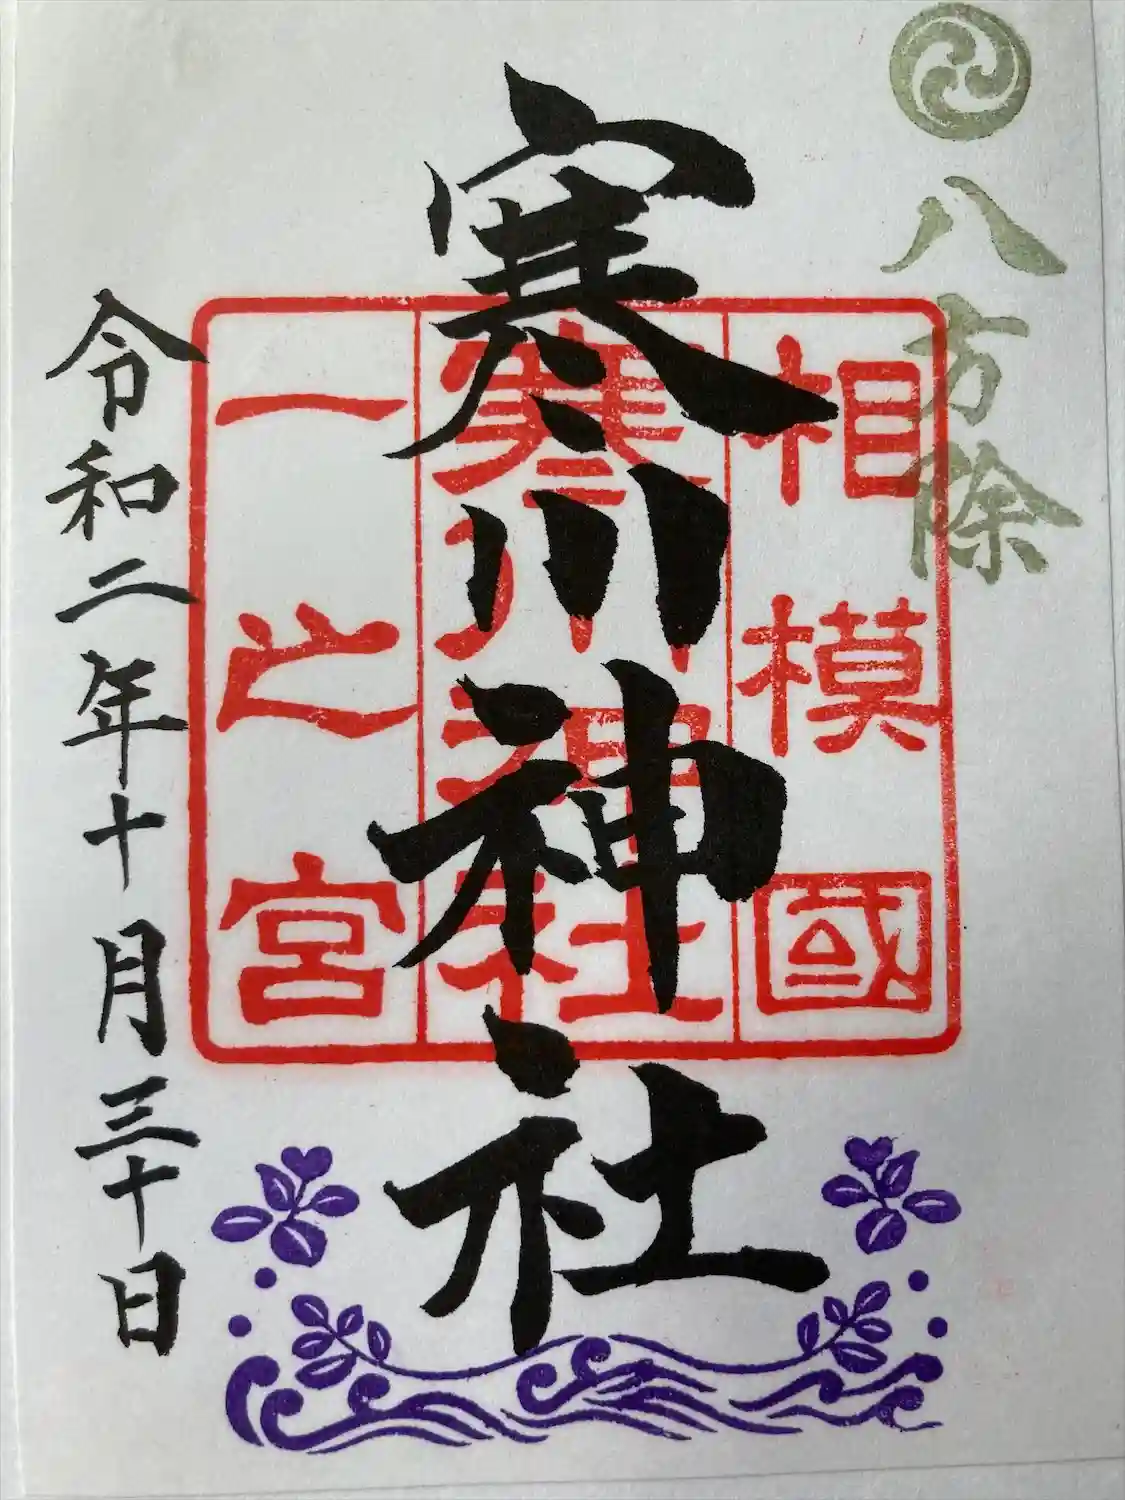 八方除
寒川神社
相模國
寒川神社
一之宮
令和二年十月三十日